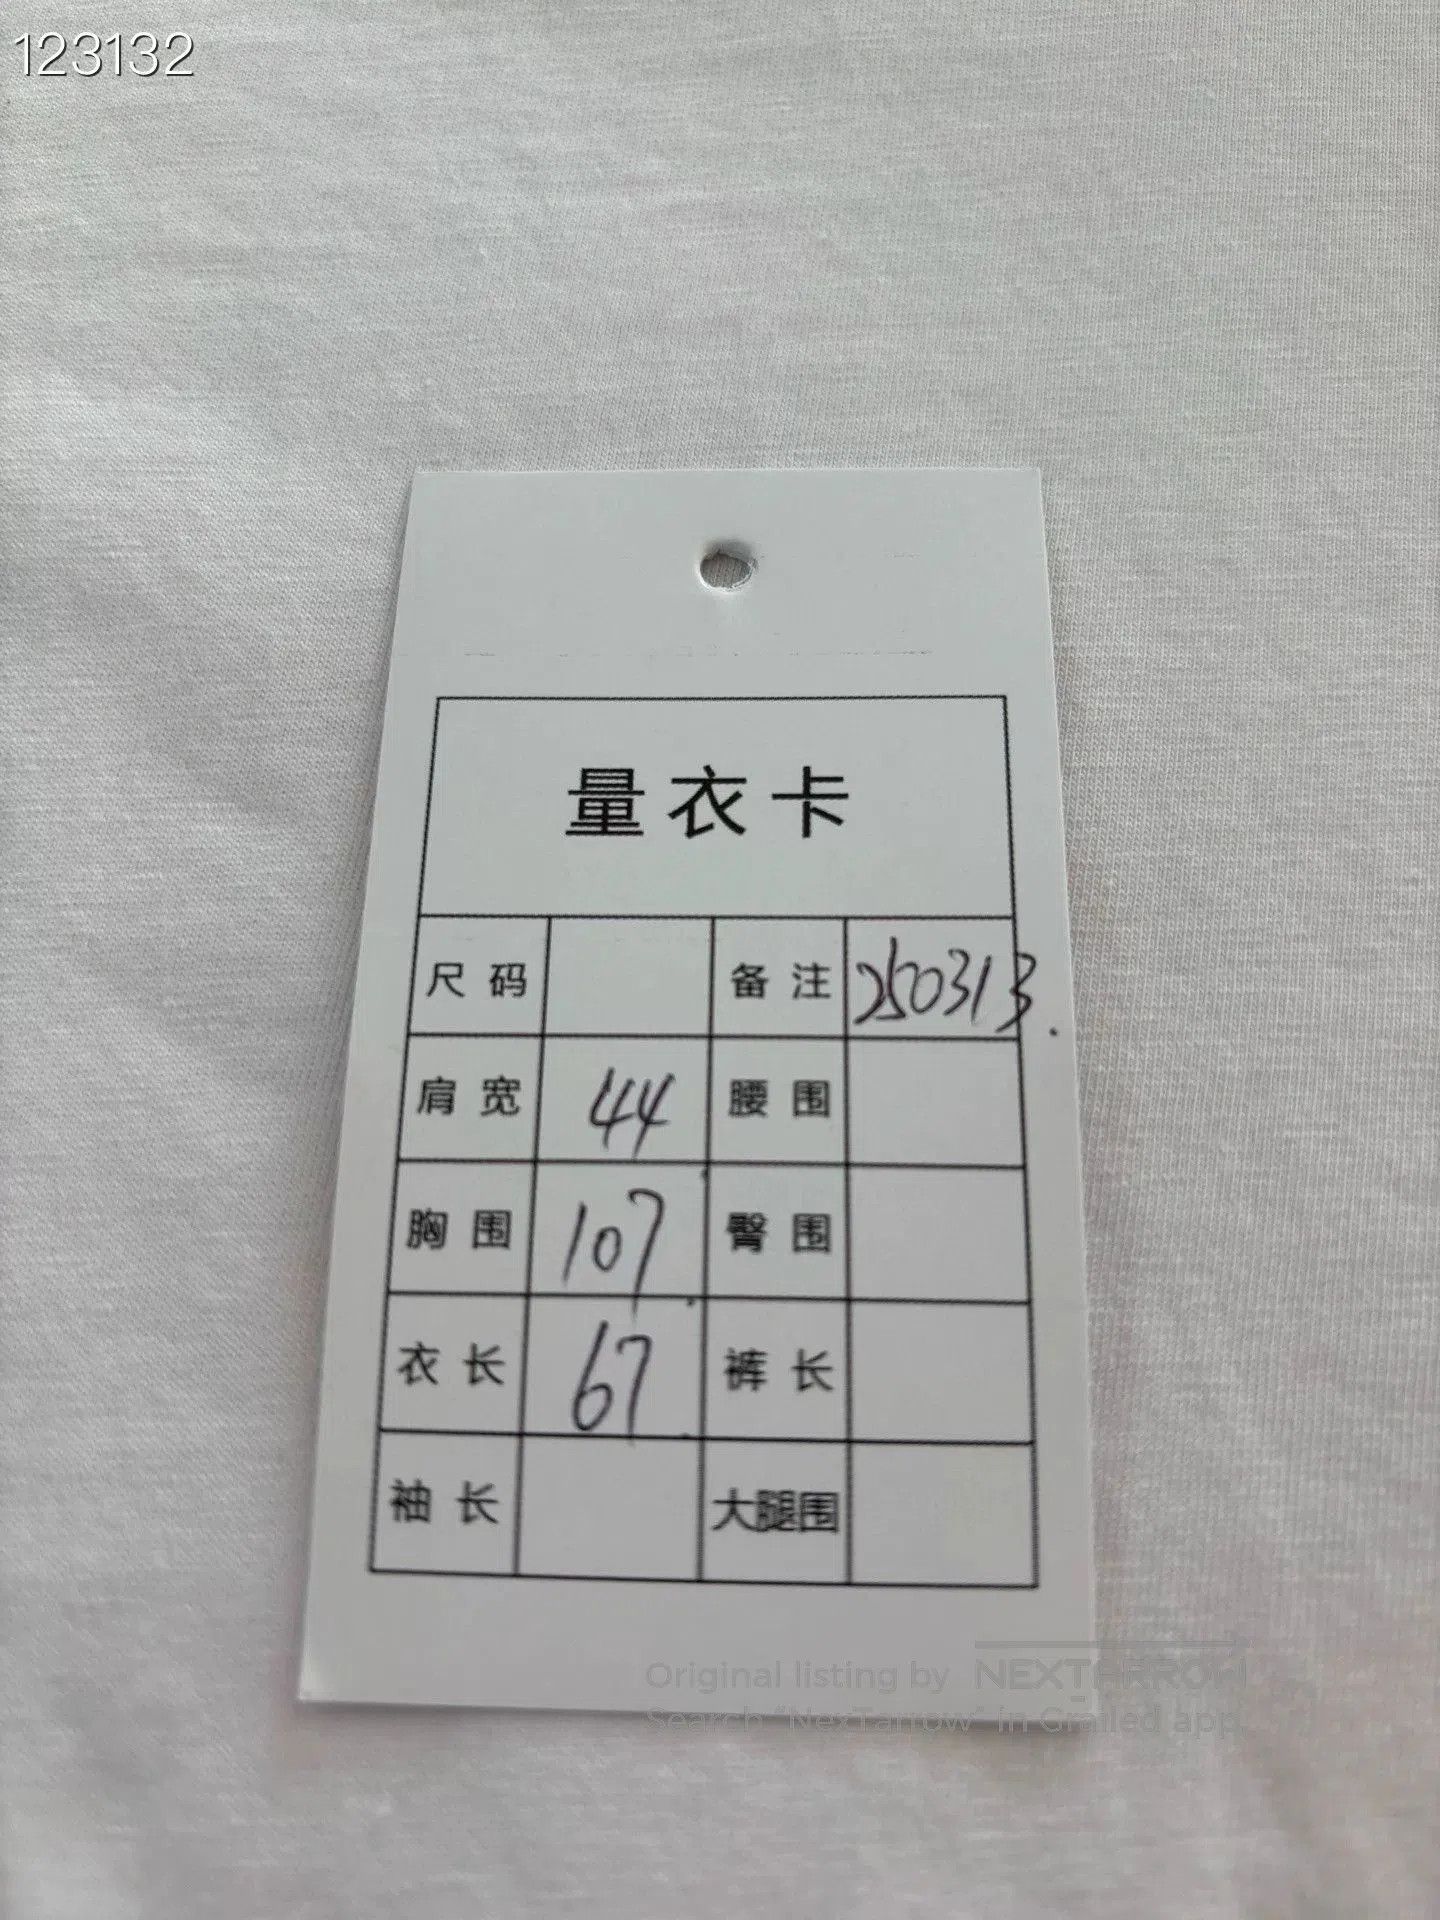 123132
量衣卡
尺码 备注 250313.
肩宽 44 腰围
胸围 107 臀围
衣长 67 裤长
袖长 大腿围
Original listing by NEXTARROW
Search "NexTarrow" in Grailed app.